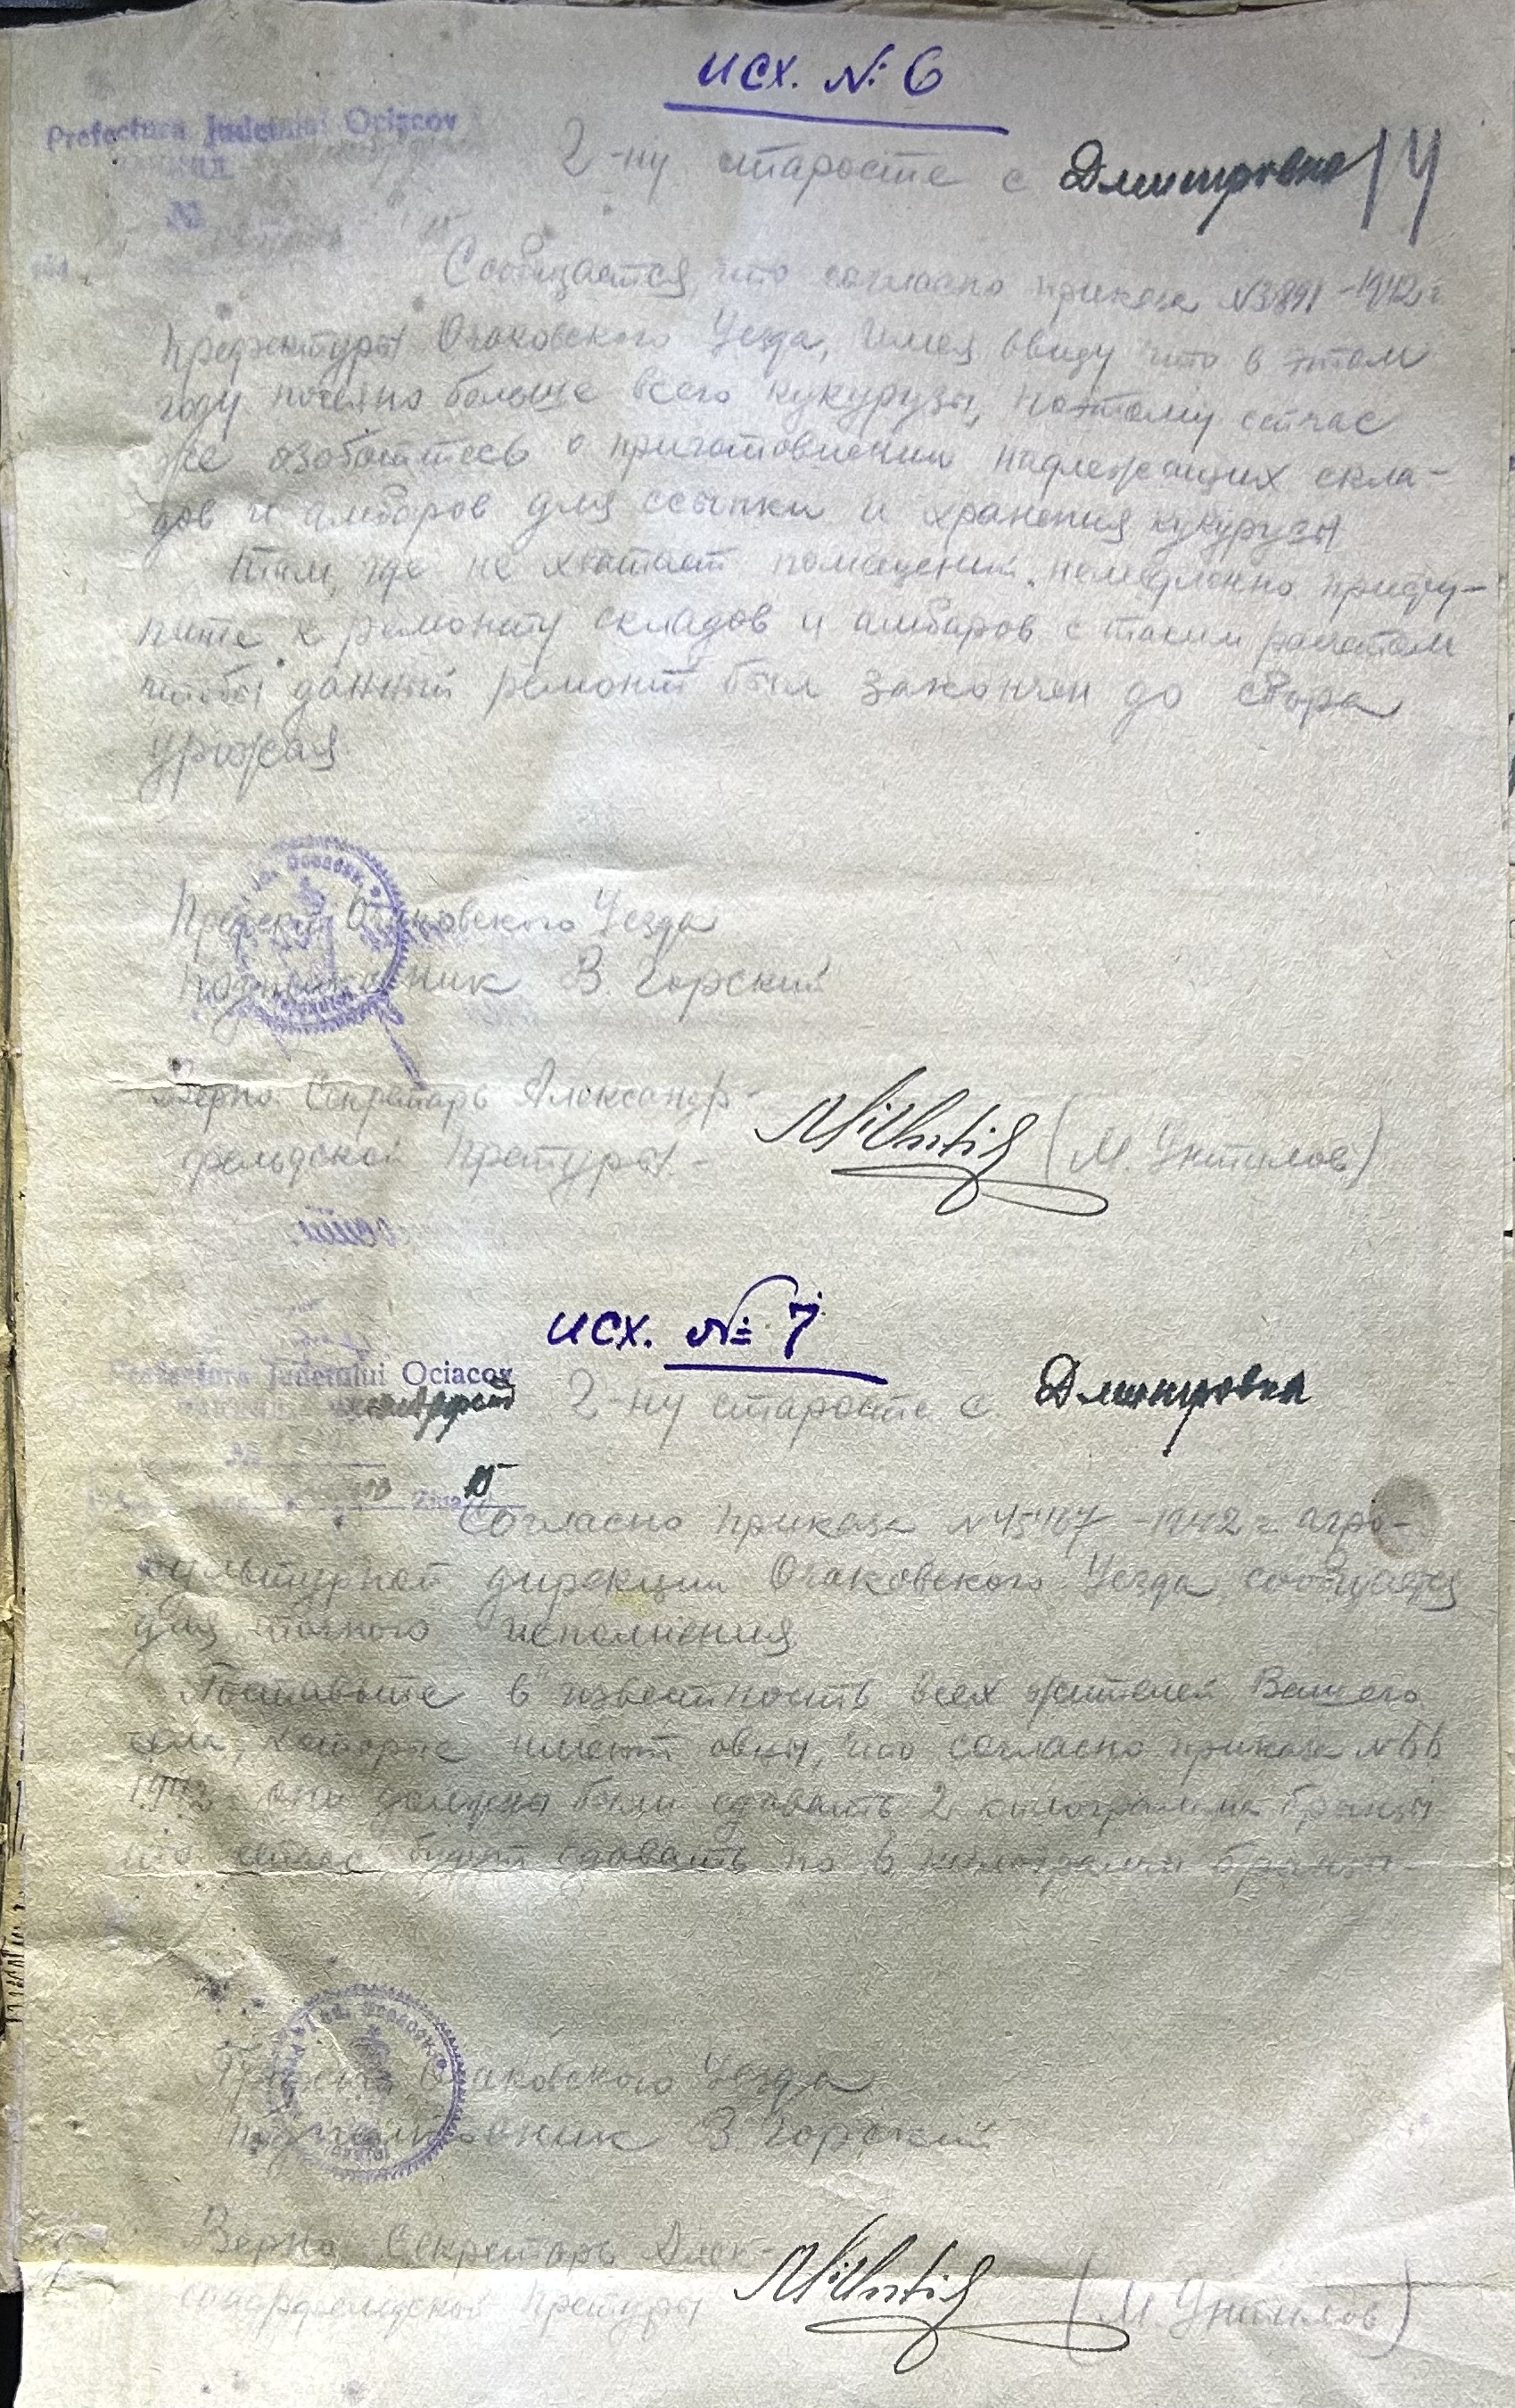 исх. № 6
Prefectura Judetului Ociacov
№
2-ну старосте с Дмитровка 14
Сообщается, что согласно приказа № 3891 - 1942 г
Префектуры Очаковского Уезда, имея ввиду что в этом
году посеяно больше всего кукурузы, поэтому сейчас
же озаботтесь о приготовлении надлежащих скла-
дов и амбаров для ссыпки и хранения кукурузы
Там, где не хватает помещений, немедленно присту-
пите к ремонту складов и амбаров с таким расчетом
чтобы данный ремонт был закончен до сбора
урожая.
Префект Очаковского Уезда
Подполковник В. Горский
Верно: Секретарь Александр-
фельдской Претуры -
(М. Унтилов)
исх. № 7
Prefectura Judetului Ociacov
2-ну старосте с. Дмитровка
№
15
Согласно приказа № 45487 - 1942 г агро-
культурной дирекции Очаковского Уезда, сообщается
для точного исполнения
Поставьте в известность всех жителей Вашего
села, которые имеют овцы, что согласно приказа №
1942 они должны были сдавать 2 килограмма брынзы
сдавать по килограмма брынзы -
Префект Очаковского Уезда
Подполковник В Горский
Верно, Секретарь Алек-
сандрфельдской Претуры
(М. Унтилов)